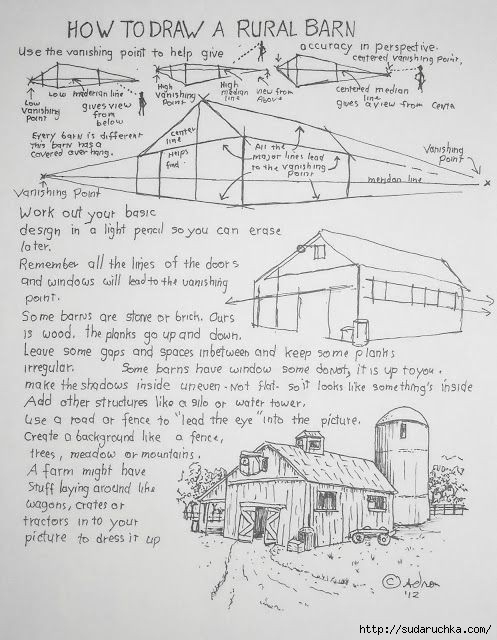 HOW TO DRAW A RURAL BARN
Use the vanishing point to help give accuracy in perspective.
Low Vanishing Point
Low maderian line
gives view from below
High Vanishing Point
High median line
view from Above
centered vanishing point,
centered median line
gives a view from Centa
Every barn is different
This barn has a
covered over hang.
center line
Helps find
All the
major lines lead
to the vanishing
point
Vanishing Point
meridan line
Vanishing Point
Work out your basic
design in a light pencil so you can erase
later.
Remember all the lines of the doors
and windows will lead to the vanishing
point.
Some barns are stone or brick. Ours
is wood. the planks go up and down.
Leave some gaps and spaces inbetween and keep some planks
irregular. Some barns have window some do not, it is up to you.
make the shadows inside uneven - Not flat - so it looks like something's inside
Add other structures like a silo or water tower.
Use a road or fence to "lead the eye" into the picture.
Create a background like a fence,
trees, meadow or mountains.
A farm might have
stuff laying around like
wagons, crates or
tractors in to your
picture to dress it up
© Adron
'12
http://sudaruchka.com/